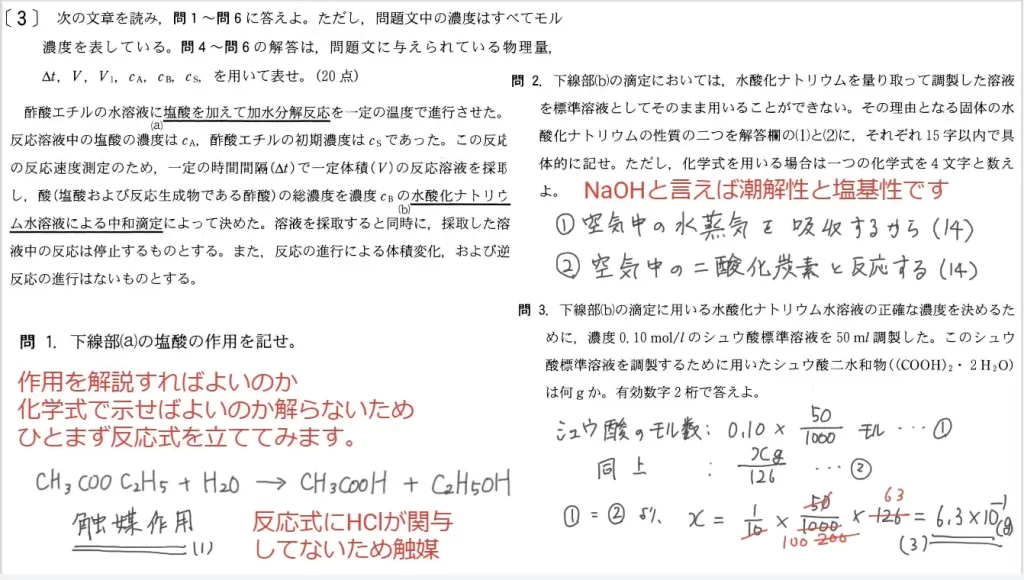 〔3〕 次の文章を読み,問1~問6に答えよ。ただし,問題文中の濃度はすべてモル
濃度を表している。問4~問6の解答は,問題文に与えられている物理量,
Δt,V,V₁,cA,cB,cS,を用いて表せ。(20点)
酢酸エチルの水溶液に塩酸を加えて加水分解反応を一定の温度で進行させた。
(a)
反応溶液中の塩酸の濃度は cA,酢酸エチルの初期濃度は cS であった。この反応
の反応速度測定のため,一定の時間間隔(Δt)で一定体積(V)の反応溶液を採取
し,酸(塩酸および反応生成物である酢酸)の総濃度を濃度 cB の水酸化ナトリウ
(b)
ム水溶液による中和滴定によって決めた。溶液を採取すると同時に,採取した溶
液中の反応は停止するものとする。また,反応の進行による体積変化,および逆
反応の進行はないものとする。
問 1. 下線部(a)の塩酸の作用を記せ。
作用を解説すればよいのか
化学式で示せばよいのか解らないため
ひとまず反応式を立ててみます。
CH₃COOC₂H₅ + H₂O → CH₃COOH + C₂H₅OH
触媒作用 (1)
反応式にHClが関与
してないため触媒
問 2. 下線部(b)の滴定においては,水酸化ナトリウムを量り取って調製した溶液
を標準溶液としてそのまま用いることができない。その理由となる固体の水
酸化ナトリウムの性質の二つを解答欄の(1)と(2)に,それぞれ15字以内で具
体的に記せ。ただし,化学式を用いる場合は一つの化学式を4文字と数え
よ。 NaOHと言えば潮解性と塩基性です
① 空気中の水蒸気を吸収するから (14)
② 空気中の二酸化炭素と反応する (14)
問 3. 下線部(b)の滴定に用いる水酸化ナトリウム水溶液の正確な濃度を決めるた
めに,濃度 0.10 mol/l のシュウ酸標準溶液を 50 ml 調製した。このシュウ
酸標準溶液を調製するために用いたシュウ酸二水和物((COOH)₂・2H₂O)
は何gか。有効数字2桁で答えよ。
シュウ酸のモル数: 0.10 × 50/1000 モル … ①
同上 : xg/126 … ②
①=②より x = 1/10 × 50/1000 × 126 = 6.3×10⁻¹(g)
63
100 200
(3)